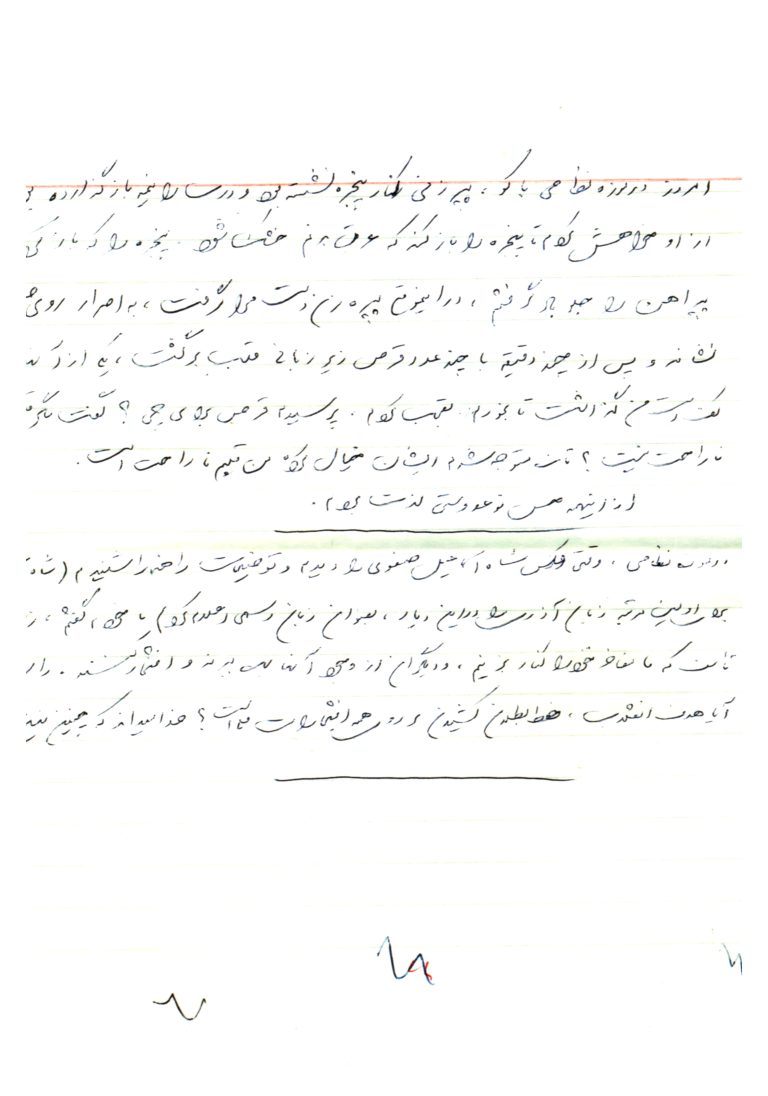 امروز در موزه نظامی باکو، پیرزنی کنار پنجره نشسته بود و درب را نیمه باز گذارده
از او خواهش کردم تا پنجره را باز کند که عرق بدنم خشک شود. پنجره را که باز
پیراهن را جلو باد گرفتم، در این موقع پیره زن دست مرا گرفت، به اصرار روی
نشاند و پس از چند دقیقه با چند عدد قرص زیر زبانی قلب برگشت، یکی از
دست من گذاشت تا بخورم. تعجب کردم. پرسیدم قرص برای چی؟ گفت مگر
ناراحت نیست؟ تازه متوجه شدم ایشان خیال کرده من قلبم ناراحت است.
از اینهمه حس نوعدوستی لذت بردم.
در موزه نظامی، وقتی عکس شاه اسماعیل صفوی را دیدم و توضیحات راهنما را شنیدم (شاه
برای اولین مرتبه زبان آذری را در این دیار، بعنوان زبان رسمی اعلام کرد) با خود گفتم،
تاسف که ما مفاخر خود را کنار بزنیم، و دیگران از وجود آنان بهره ببرند و افتخار کنند.
آیا هدف انقلاب، خط بطلان کشیدن بر روی همه افتخارات ملی است؟ خدا میداند که چنین